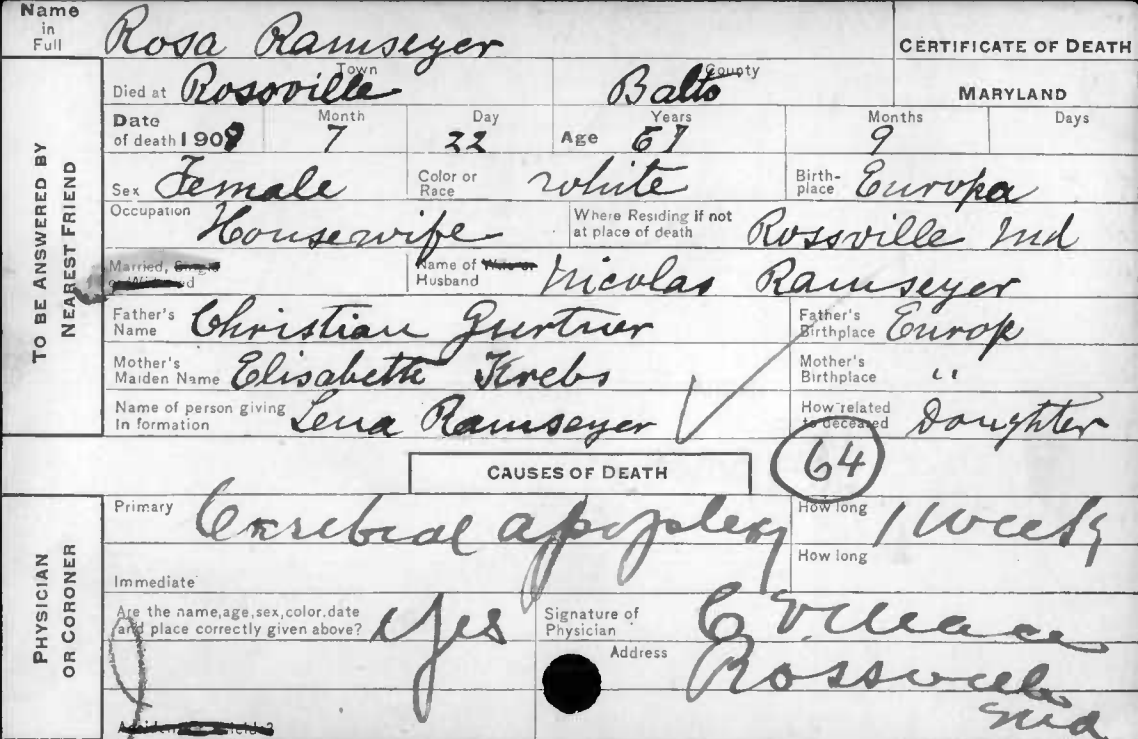 Name in Full Rosa Ramseyer
CERTIFICATE OF DEATH
TO BE ANSWERED BY NEAREST FRIEND
Died at Rossville Town Balto County MARYLAND
Date of death 190 Month 7 Day 22 Age Years Months 9 Days
Sex Female Color or Race white Birth-place Europa
Occupation Housewife Where Residing if not at place of death Rossville Md
Married, Single or Widowed Name of Wife or Husband Nicolas Ramseyer
Father's Name Christian Gurtner Father's Birthplace Europ
Mother's Maiden Name Elisabeth Krebs Mother's Birthplace "
Name of person giving In formation Lena Ramseyer How related to deceased Doughter
64
CAUSES OF DEATH
PHYSICIAN OR CORONER
Primary Cerebral apoplexy How long 1 week
Immediate How long
Are the name, age, sex, color, date and place correctly given above? Yes Signature of Physician
Address Rossville
Md